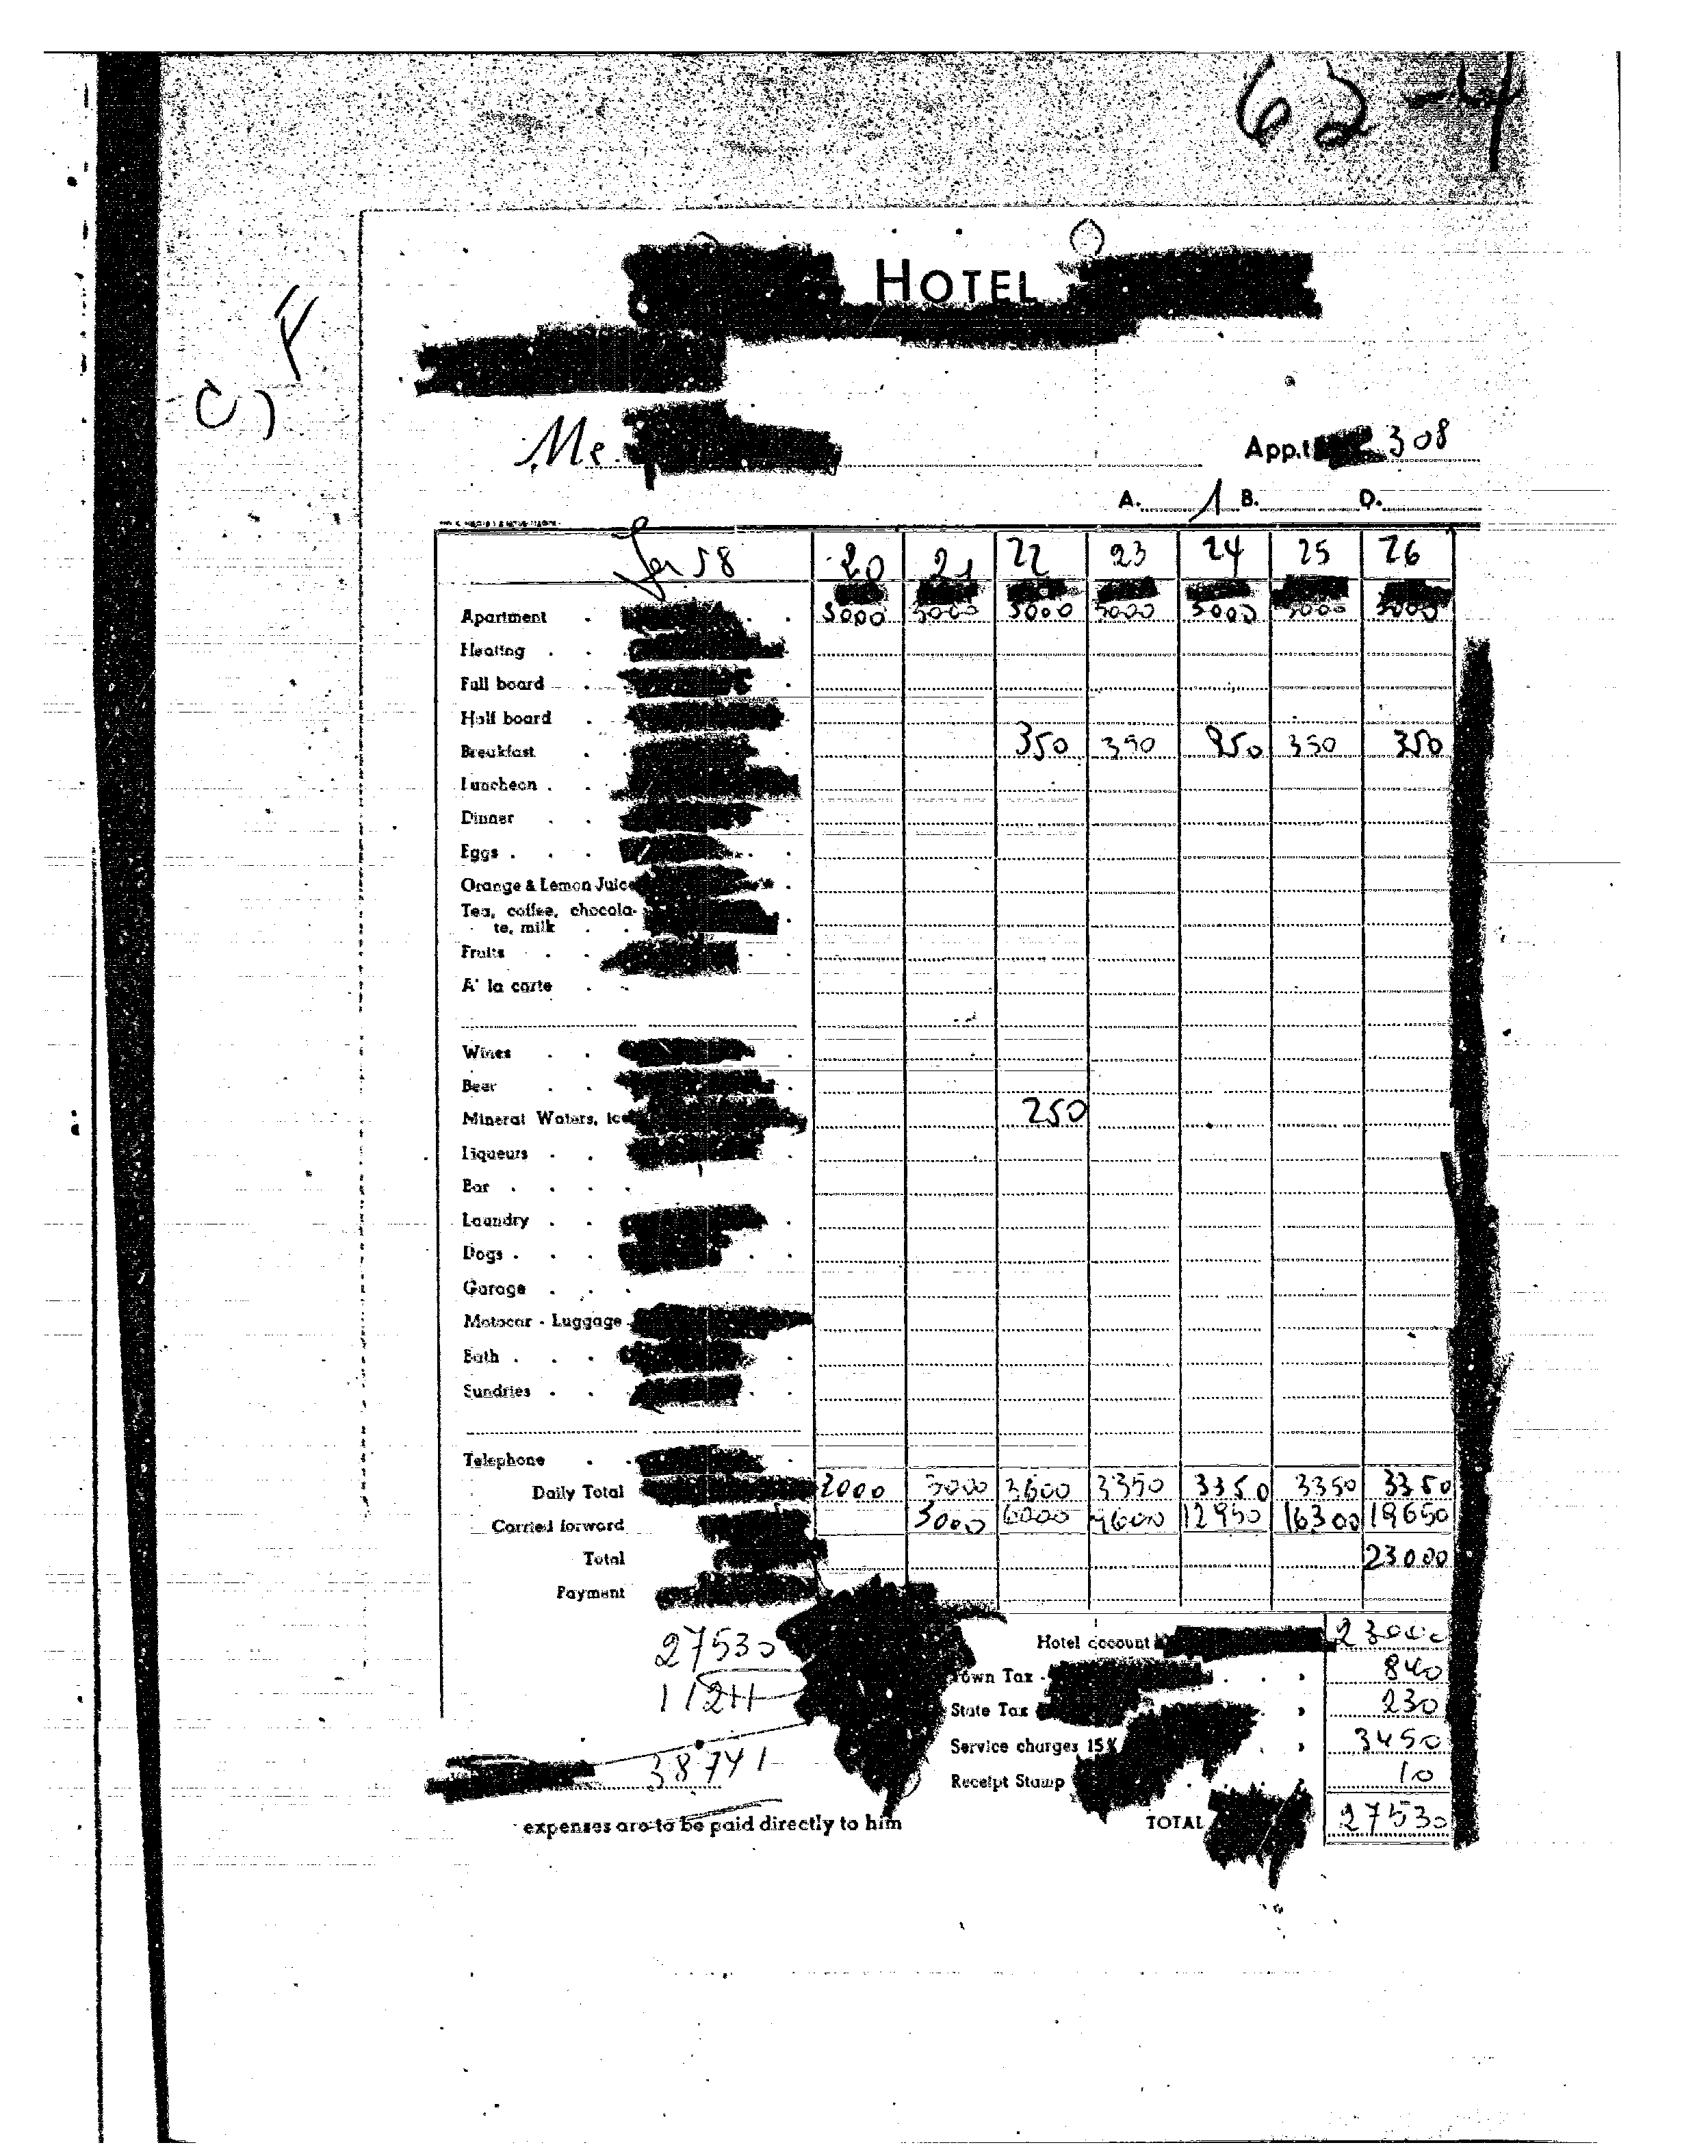 62-4
HOTEL
C) F
Me.
App.t 308
A. 1 B. D.
58 20 21 22 23 24 25 26
Apartment 3000 3000 3000 3000 3000 3000 3000
Heating
Full board
Half board
Breakfast 350 350 350 350 350
Luncheon
Dinner
Eggs
Orange & Lemon Juice
Tea, coffee, chocola-
te, milk
Fruits
A' la carte
Wines
Beer
Mineral Waters, Ice 250
Liqueurs
Bar
Laundry
Dogs
Garage
Motocar - Luggage
Bath
Sundries
Telephone
Daily Total 3000 3000 3600 3350 3350 3350 3350
Carried forward 3000 6000 9600 12950 16300 19650
Total 23000
Payment
27530
11211
38741
expenses are to be paid directly to him
Hotel account 23000
Town Tax 840
State Tax 230
Service charges 15% 3450
Receipt Stamp 10
TOTAL 27530